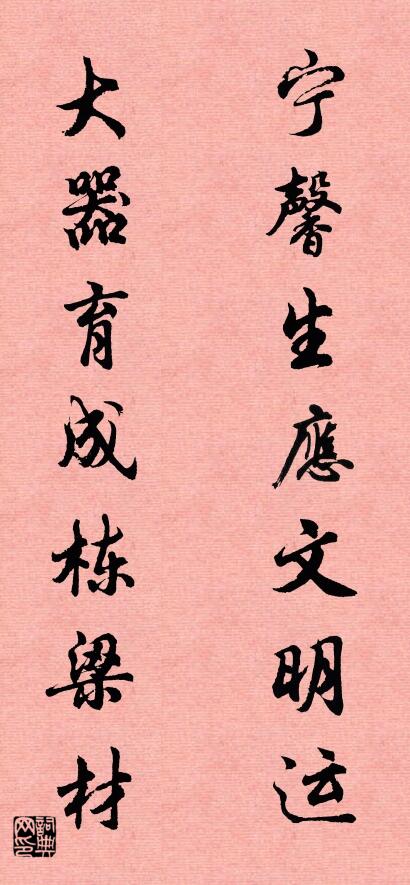 宁馨生應文明运
大器育成栋梁材
詞典网印